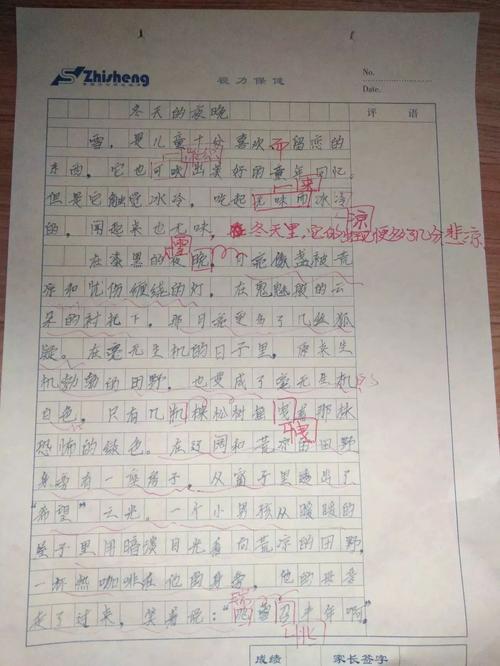 Zhisheng
视力保健
No.
Date.
评 语
冬天的夜晚
雪，是儿童十分喜欢而留恋的
东西。它也可以 出美好的童年回忆。
但是它触觉冰冷，吃起 来 无味而冰冷
的，闻起来也无味，在冬天里，它的 便多了几分悲凉
在漆黑的夜晚，月亮像盏被荒
凉和忧伤缠绕的灯，在鬼魅般的云
朵的衬托下，那月亮更多了几丝狐
疑。在毫无生机的日子里，原来生
机勃勃的田野，也变成了毫无生机
白色。只有几 棵松树 着那林
恐怖的 色。在辽阔和荒凉的田野
有一座房子，从窗子里 出了
“希望”之光。一个小男孩从暖暖的
子里用暗淡目光看向荒凉的田野，
一杯热咖啡在他的身旁，他的母亲
走了过来，笑着说：“瑞雪兆丰年啊。”
成绩
家长签字